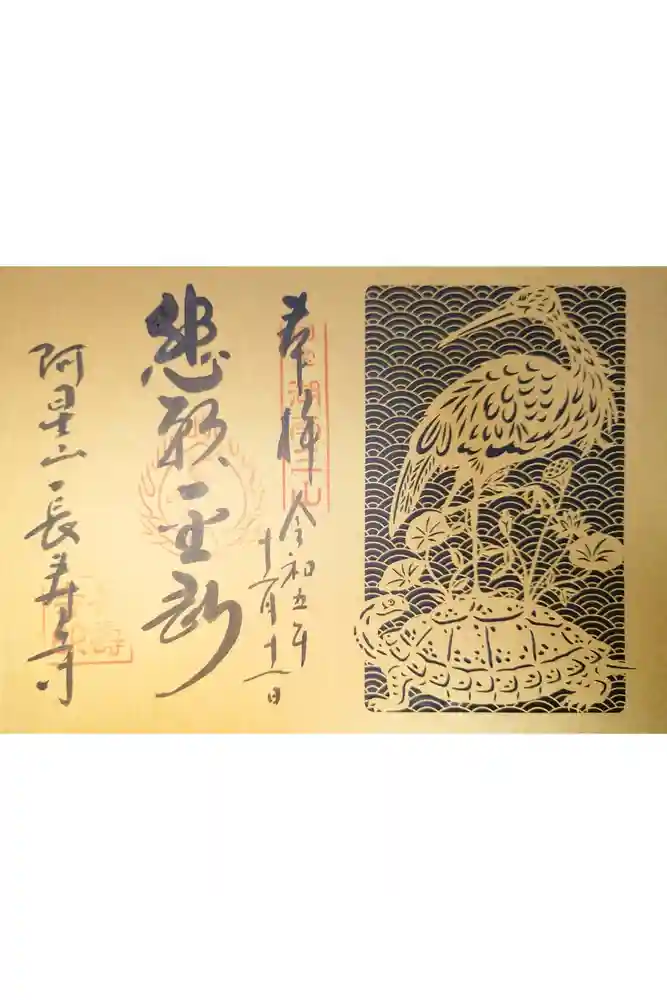 奉拝 令和五年十一月十一日
悲願金剛
阿星山 長寿寺